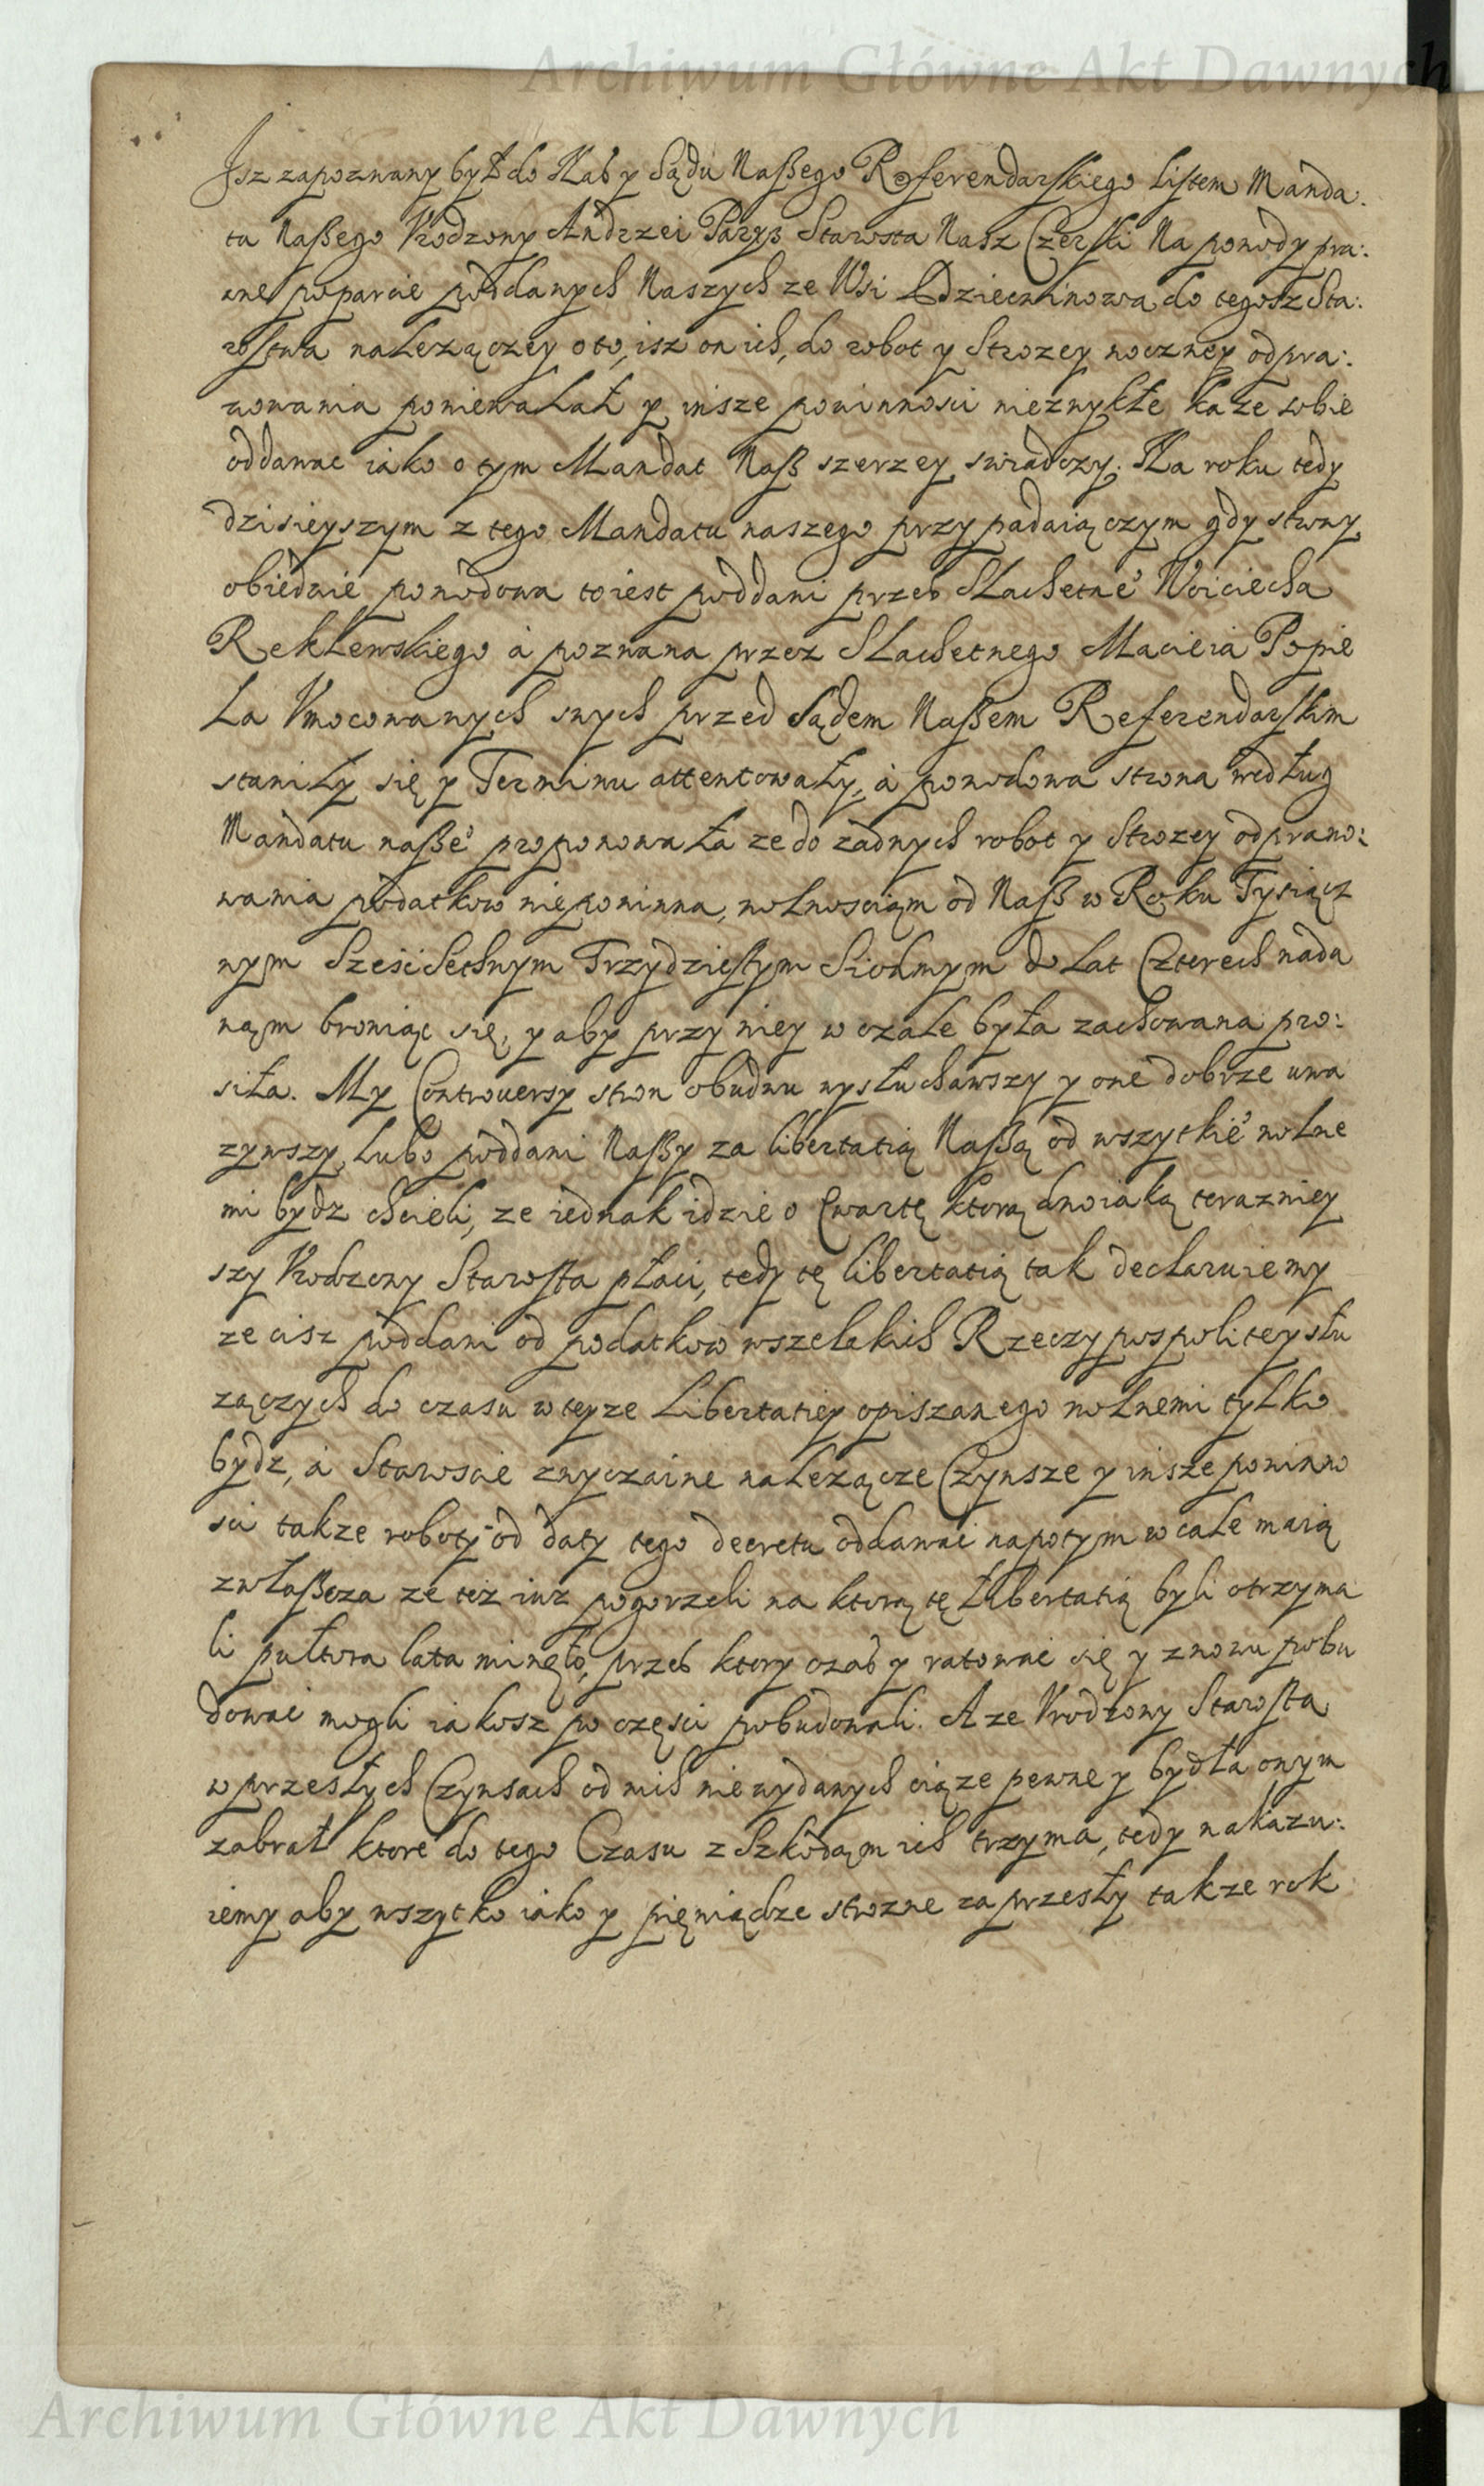 Archiwum Główne Akt Dawnych
Isz zapoznany był do Nas y Sądu Naßego Referendarskiego listem Manda:
tu Naßego Vrodzony Andrzei Parys Starosta Nasz Czerski Na powody pra:
wne poparcie poddanych Naszych ze Wsi Dziecinowa do tegosz Sta:
rostwa nalezączey o to, isz on ich, do robot y Strozey noczney odpra:
wowania poniewalał y insze powinnosci niezwykłe kaze sobie
oddawac iako o tym Mandat Naß szerzey swiadczy. Na roku tedy
dzisieyszym z tego Mandatu naszego przypadaiączym gdy strony
obiedwie powodowa to iest poddani przes Slachetne° Woiciecha
Reklewskiego à pozwana przez Slachetnego Macieia Popie
la Vmocowanych swych przed Sądem Naßem Referendarskim
stawiły się y Terminu attentowały, à powodowa strona według
Mandatu naße° proponowała ze do zadnych robot y Strozey odprawo:
wania podatkow niepowinna, wolnosciąm od Naß w Roku Tysiącz
nym Szescsethnym Trzydziestym Siodmym do lat Czterech nada
nąm broniąc się, y aby przy niey w czale była zachowana pro:
siła. My Controuersy stron obudwu wysłuchawszy y one dobrze uwa
zywszy, lubo poddani Naßy za libertatią Naßą od wszytkie° wolne
mi bydz chcieli, ze iednak idzie o Cwartę ktorą dwoiaką terazniey
szy Vrodzony Starosta płaci, tedy tę libertatią tak declaruiemy
ze cisz poddani od podatkow wszelakich Rzeczypospolitey słu
ząnczych do czasu w teyze Libertatiey opiszanego wolnemi tylko
bydz, à Staroscie zwyczaine nalezącze Czynsze y insze powinno
sci takze roboty od daty tego decretu oddawac napotym w cale maią
zwłaßcza ze tez iuz pogorzeli na ktorą tę Libertatią byli otrzyma
li pułtora lata minęło, przes ktory czas y ratowac się y znowu pobu
dowac mogli iakosz po częsci pobudowali. A ze Vrodzony Starosta
w przeszłych Czynsach od nich niewydanych ciąze pewne y bydła onym
zabrał ktore do tego Czasu z Szkodąm ich trzyma, tedy nakazu:
iemy aby wszytko iako y pięniądze strozne za przeszły takze rok
Archiwum Główne Akt Dawnych